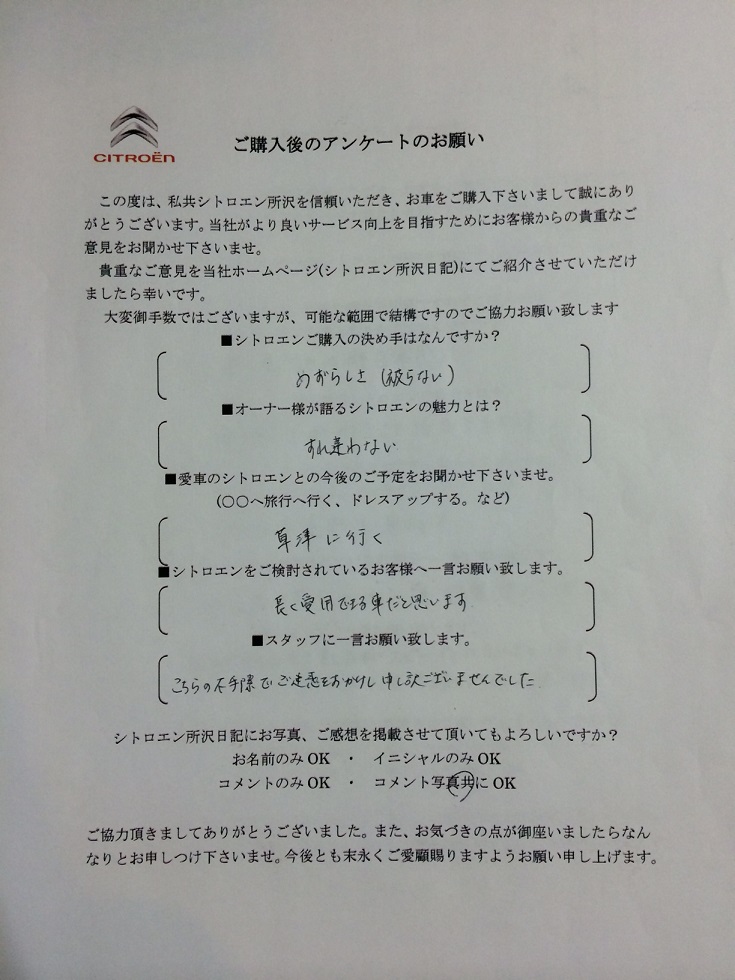 CITROËN
ご購入後のアンケートのお願い
この度は、私共シトロエン所沢を信頼いただき、お車をご購入下さいまして誠にあり
がとうございます。当社がより良いサービス向上を目指すためにお客様からの貴重なご
意見をお聞かせ下さいませ。
貴重なご意見を当社ホームページ(シトロエン所沢日記)にてご紹介させていただけ
ましたら幸いです。
大変御手数ではございますが、可能な範囲で結構ですのでご協力お願い致します
■シトロエンご購入の決め手はなんですか？
めずらしさ（被らない）
■オーナー様が語るシトロエンの魅力とは？
すれ違わない
■愛車のシトロエンとの今後のご予定をお聞かせ下さいませ。
(○○へ旅行へ行く、ドレスアップする。など)
草津に行く
■シトロエンをご検討されているお客様へ一言お願い致します。
長く愛用できる車だと思います
■スタッフに一言お願い致します。
こちらの不手際でご迷惑をおかけし申し訳ございませんでした
シトロエン所沢日記にお写真、ご感想を掲載させて頂いてもよろしいですか？
お名前のみ OK ・ イニシャルのみ OK
コメントのみ OK ・ コメント写真共に OK
ご協力頂きましてありがとうございました。また、お気づきの点が御座いましたらなん
なりとお申しつけ下さいませ。今後とも末永くご愛顧賜りますようお願い申し上げます。